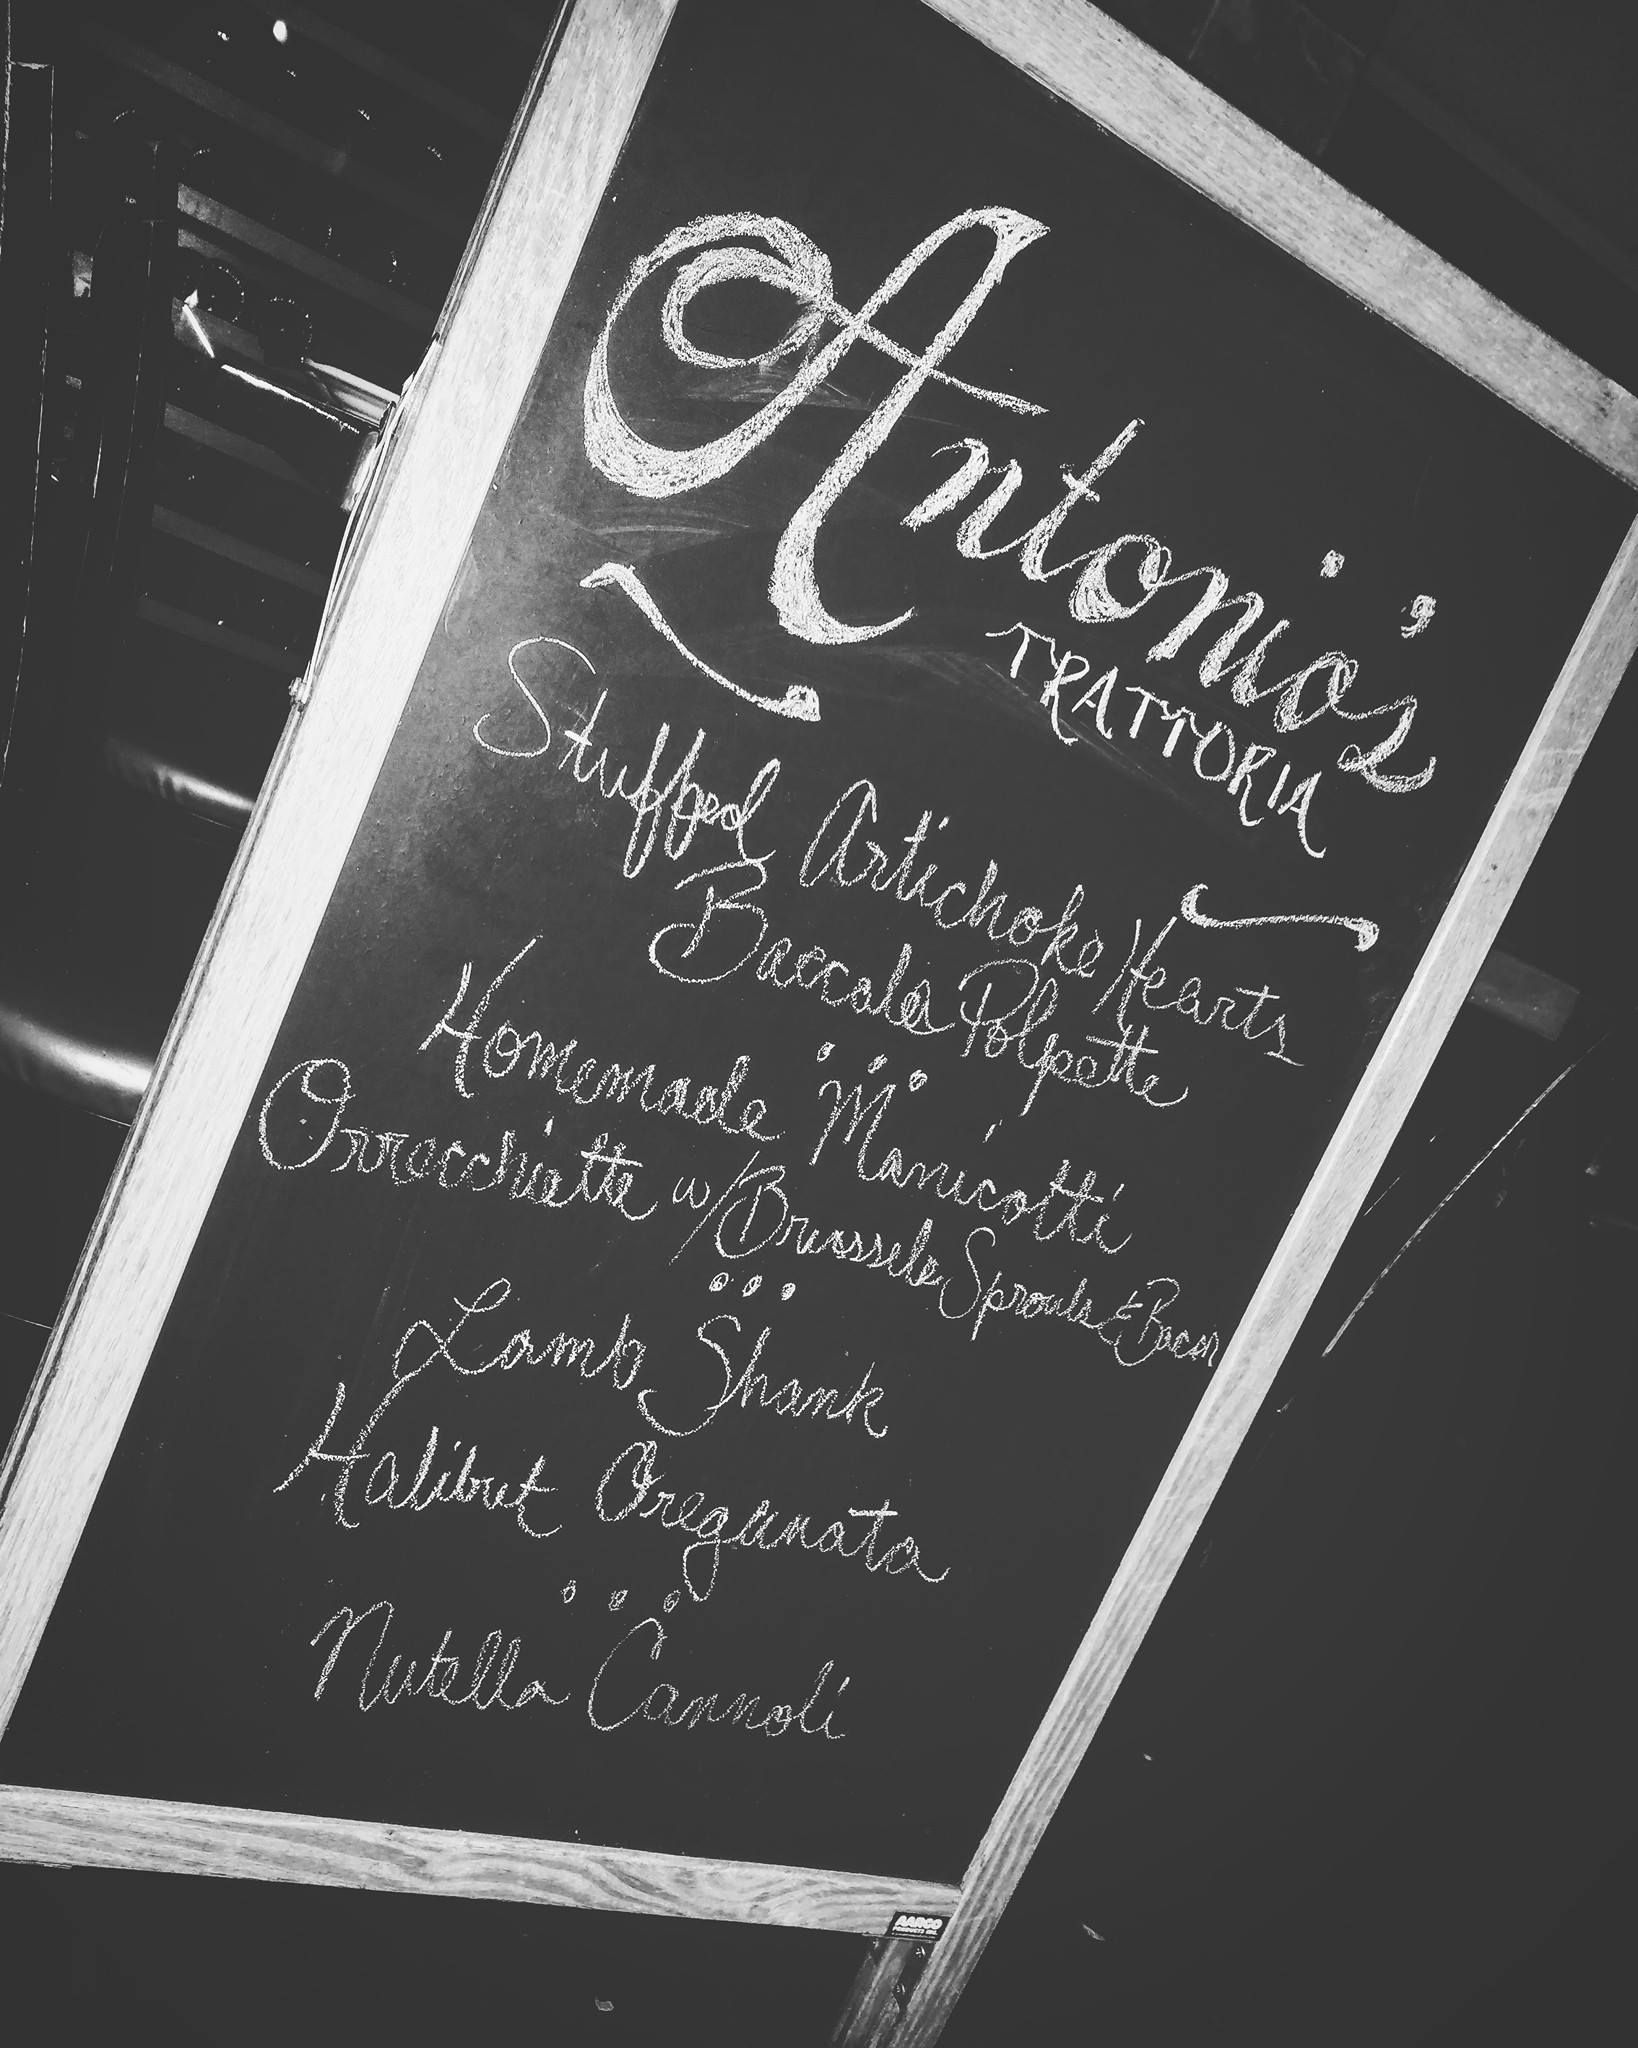 Antonio's
TRATTORIA
Stuffed Artichoke Hearts
Baccala Polpette
Homemade Manicotti
Orrecchiette w/ Brussels Sprouts & Bacon
Lamb Shank
Halibut Oreganata
Nutella Cannoli
AARCO
PRODUCTS INC.